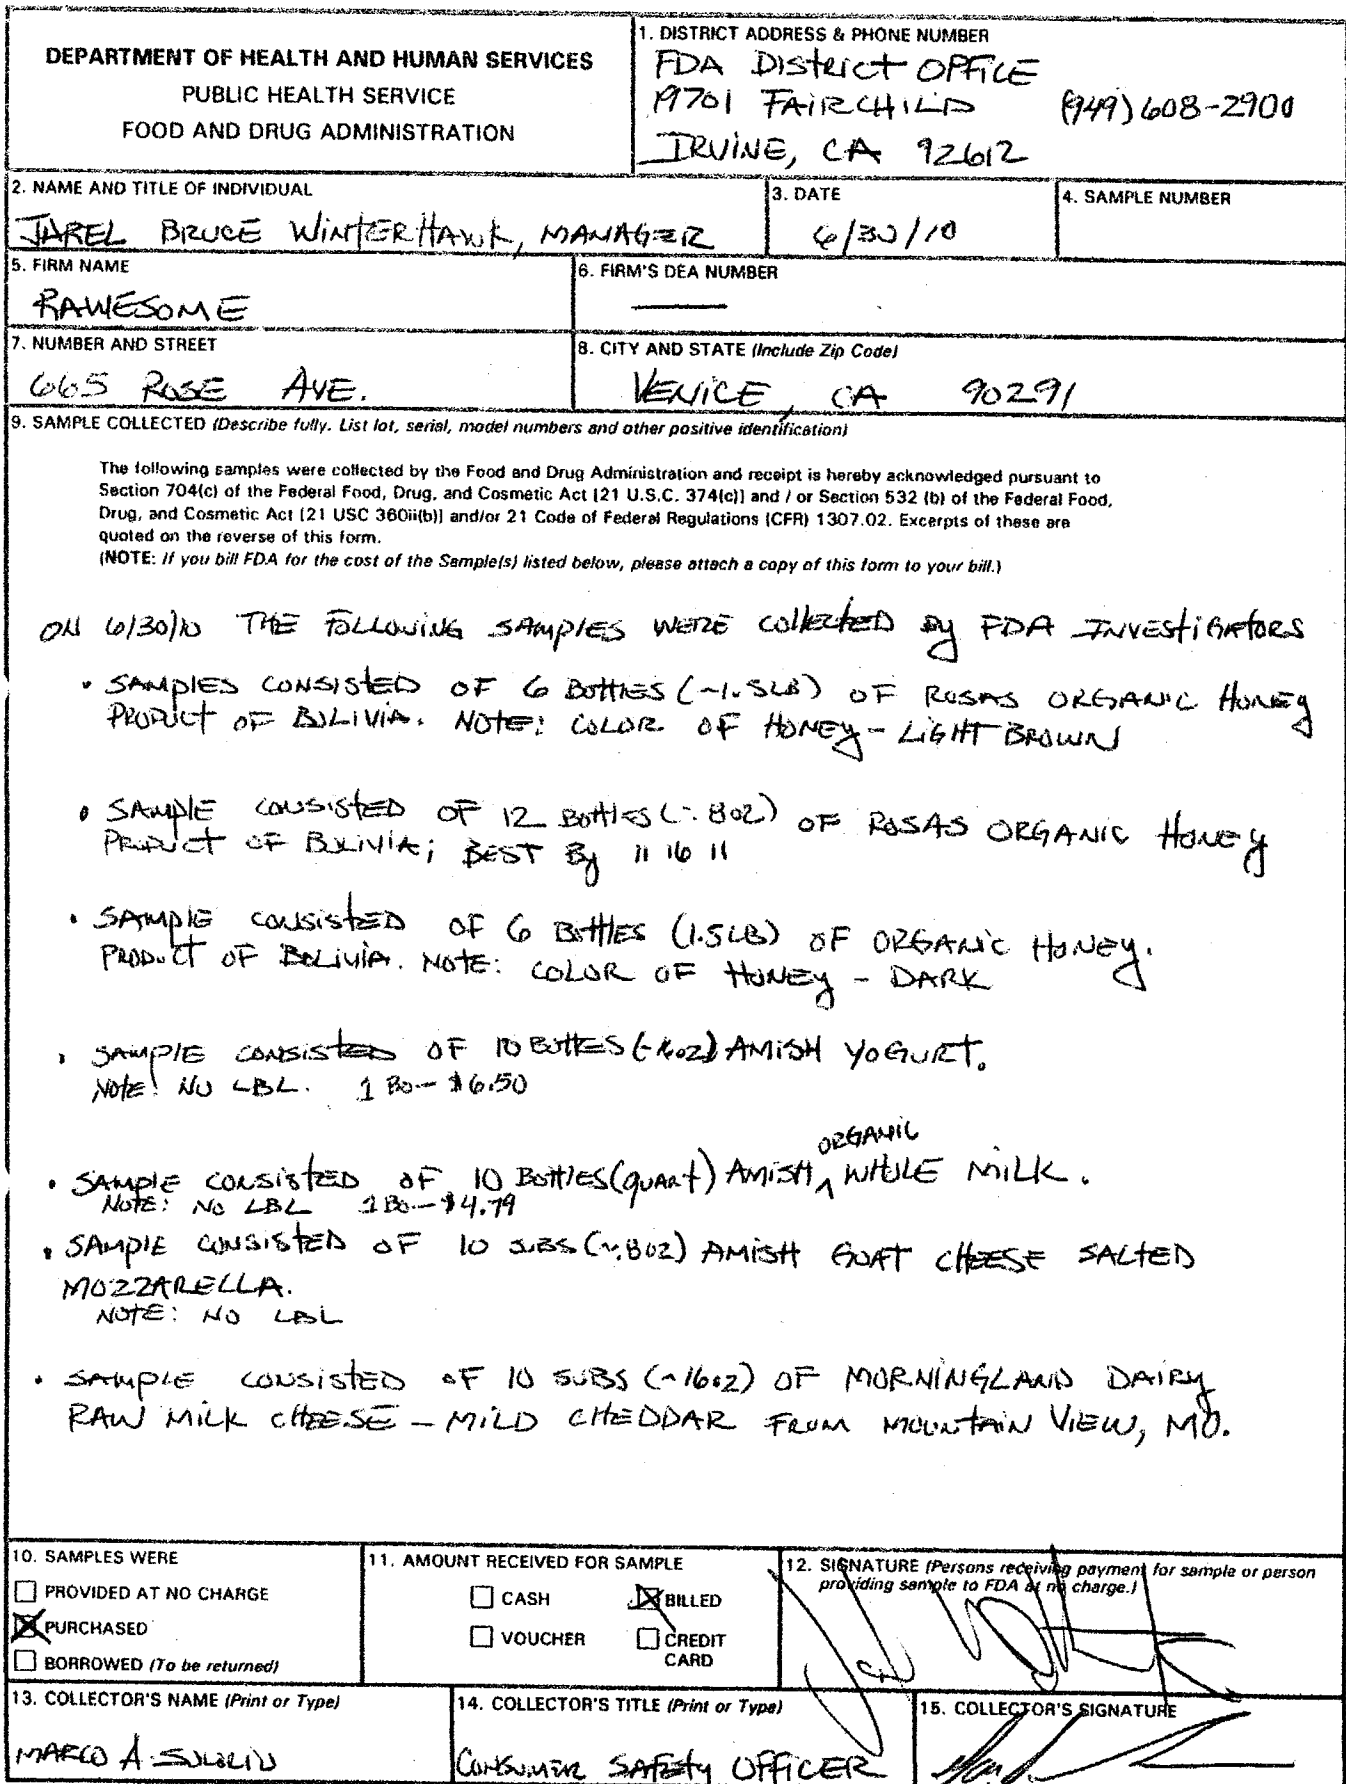 DEPARTMENT OF HEALTH AND HUMAN SERVICES
PUBLIC HEALTH SERVICE
FOOD AND DRUG ADMINISTRATION
1. DISTRICT ADDRESS & PHONE NUMBER
FDA District OFFICE
19701 FAIRCHILD (949) 608-2900
IRVINE, CA 92612
2. NAME AND TITLE OF INDIVIDUAL
JAREL BRUCE WINTERHAWK, MANAGER
3. DATE
6/30/10
4. SAMPLE NUMBER
5. FIRM NAME
RAWESOME
6. FIRM'S DEA NUMBER
—
7. NUMBER AND STREET
665 ROSE AVE.
8. CITY AND STATE (Include Zip Code)
VENICE, CA 90291
9. SAMPLE COLLECTED (Describe fully. List lot, serial, model numbers and other positive identification)
The following samples were collected by the Food and Drug Administration and receipt is hereby acknowledged pursuant to
Section 704(c) of the Federal Food, Drug, and Cosmetic Act [21 U.S.C. 374(c)] and / or Section 532 (b) of the Federal Food,
Drug, and Cosmetic Act [21 USC 360ii(b)] and/or 21 Code of Federal Regulations (CFR) 1307.02. Excerpts of these are
quoted on the reverse of this form.
(NOTE: If you bill FDA for the cost of the Sample(s) listed below, please attach a copy of this form to your bill.)
ON 6/30/10 THE FOLLOWING SAMPLES WERE COLLECTED By FDA INVESTIGATORS
• SAMPLES CONSISTED OF 6 BOTTLES (~1.5LB) OF ROSAS ORGANIC HONEY
PRODUCT OF BOLIVIA. NOTE: COLOR OF HONEY - LIGHT BROWN
• SAMPLE CONSISTED OF 12 BOTTLES (~.8OZ) OF ROSAS ORGANIC HONEY
PRODUCT OF BOLIVIA; BEST By 11 16 11
• SAMPLE CONSISTED OF 6 BOTTLES (1.5LB) OF ORGANIC HONEY.
PRODUCT OF BOLIVIA. NOTE: COLOR OF HONEY - DARK
• SAMPLE CONSISTED OF 10 BOTTLES (~16oz) AMISH YOGURT.
NOTE: NO LBL. 1 BO — $6.50
• SAMPLE CONSISTED OF 10 BOTTLES (quart) AMISH ORGANIC WHOLE MILK.
NOTE: NO LBL 1 BO — $4.79
• SAMPLE CONSISTED OF 10 SUBS (~.8OZ) AMISH GOAT CHEESE SALTED
MOZZARELLA.
NOTE: NO LBL
• SAMPLE CONSISTED OF 10 SUBS (~16oz) OF MORNINGLAND DAIRY
RAW MILK CHEESE - MILD CHEDDAR FROM MOUNTAIN VIEW, MO.
10. SAMPLES WERE
PROVIDED AT NO CHARGE
PURCHASED
BORROWED (To be returned)
11. AMOUNT RECEIVED FOR SAMPLE
CASH
BILLED
VOUCHER
CREDIT CARD
12. SIGNATURE (Persons receiving payment for sample or person
providing sample to FDA at no charge.)
13. COLLECTOR'S NAME (Print or Type)
MARCO A
14. COLLECTOR'S TITLE (Print or Type)
CONSUMER SAFETY OFFICER
15. COLLECTOR'S SIGNATURE